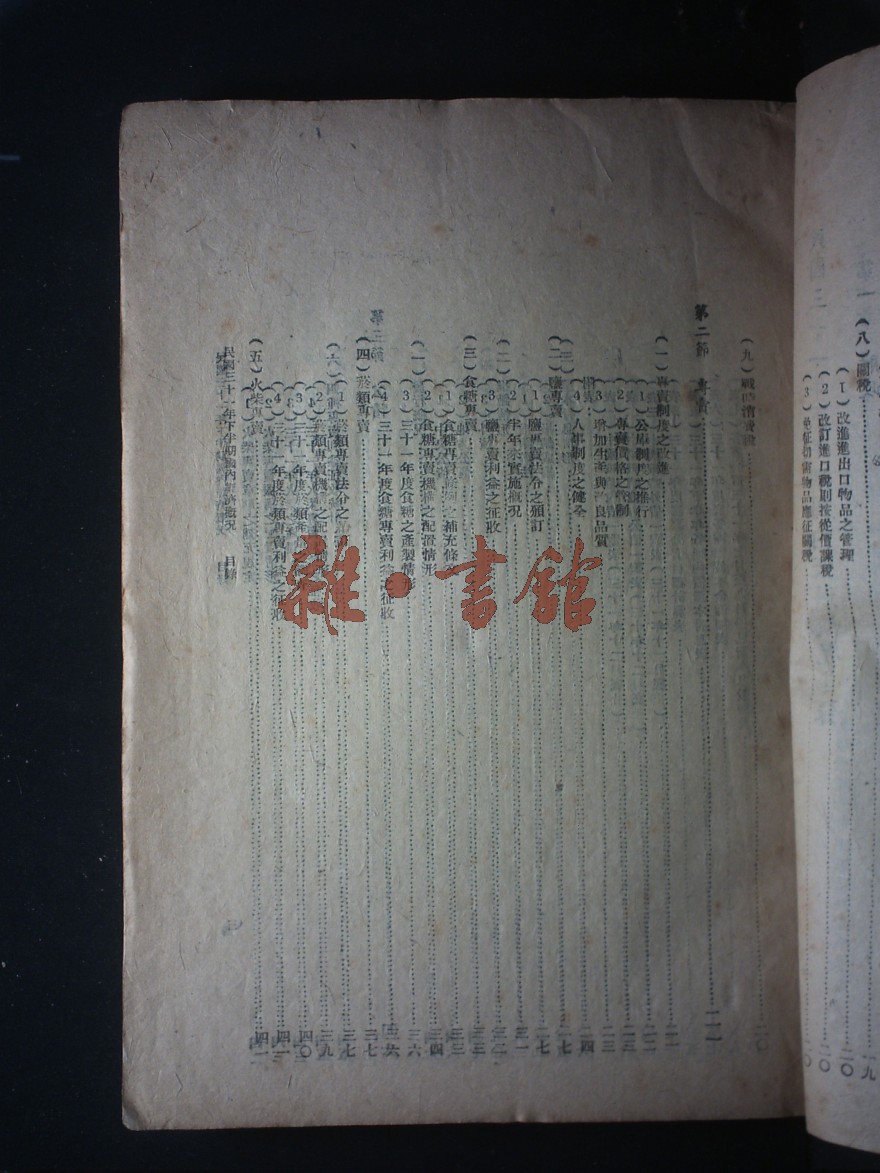 (八)關稅……一九
(1)改進進出口物品之管理……二〇
(2)改訂進口稅則按從價課稅……二〇
(3)免征切需物品應征關稅
(九)戰時消費稅……二〇
第二節 專賣……二一
(一)專賣制度之改進……二一
(1)公庫制度之推行……二二
(2)專賣價格之管制……二三
(3)增加生產與改良品質……二三
(4)人事制度之健全……二四
(二)鹽專賣……二七
(1)鹽專賣法分之頒訂……二七
(2)半年來實施概況……三一
(3)鹽專賣利益之征收……三二
(三)食糖專賣……三三
(1)食糖專賣條例之補充條分……三三
(2)食糖專賣機構之配置情形……三四
(3)三十一年度食糖之產製情形……三六
(4)三十一年度食糖專賣利益之征收……三六
(四)菸類專賣……三七
(1)菸類專賣法分之……三七
(2)菸類專賣機構之配……三九
(3)三十一年度菸類……四〇
(4)三十一年度菸類專賣利益之征收……四一
(五)火柴專賣……四一
民國三十一年下半期國內經濟概況 目錄
雜·書館